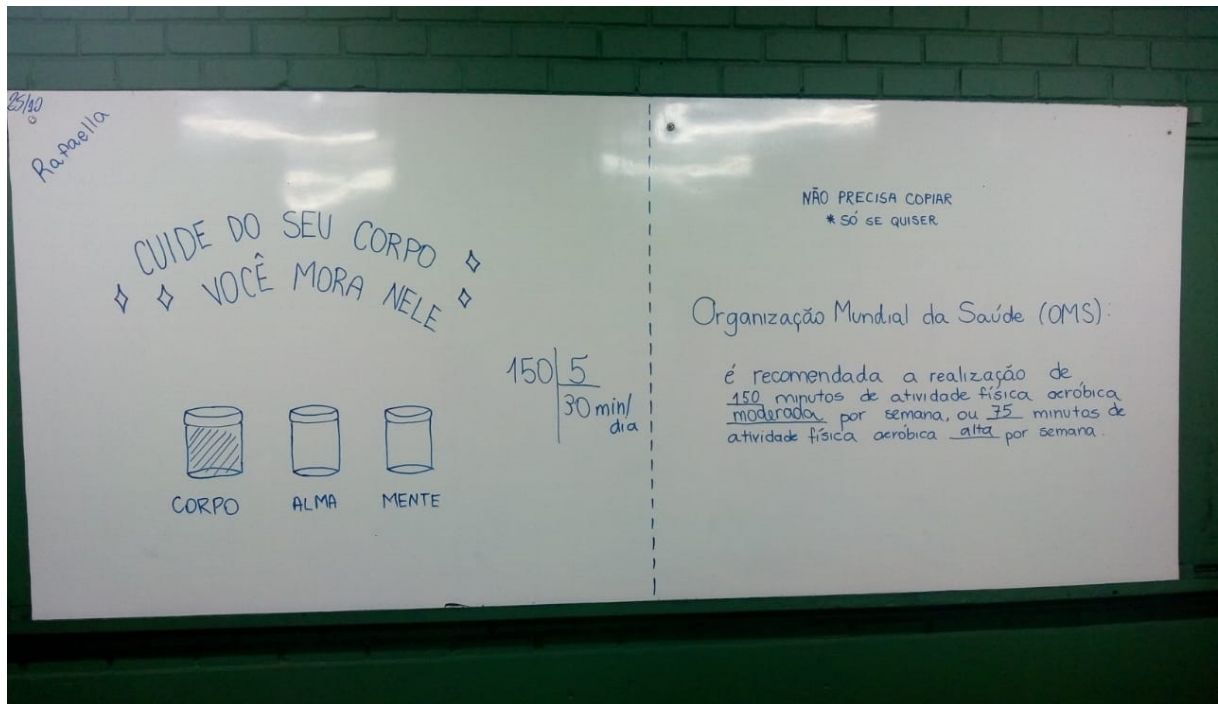 25/10
Rafaella
CUIDE DO SEU CORPO
VOCÊ MORA NELE
150 5
30 min/
dia
CORPO ALMA MENTE
NÃO PRECISA COPIAR
* SÓ SE QUISER
Organização Mundial da Saúde (OMS):
é recomendada a realização de
150 minutos de atividade física aeróbica
moderada por semana, ou 75 minutos de
atividade física aeróbica alta por semana.